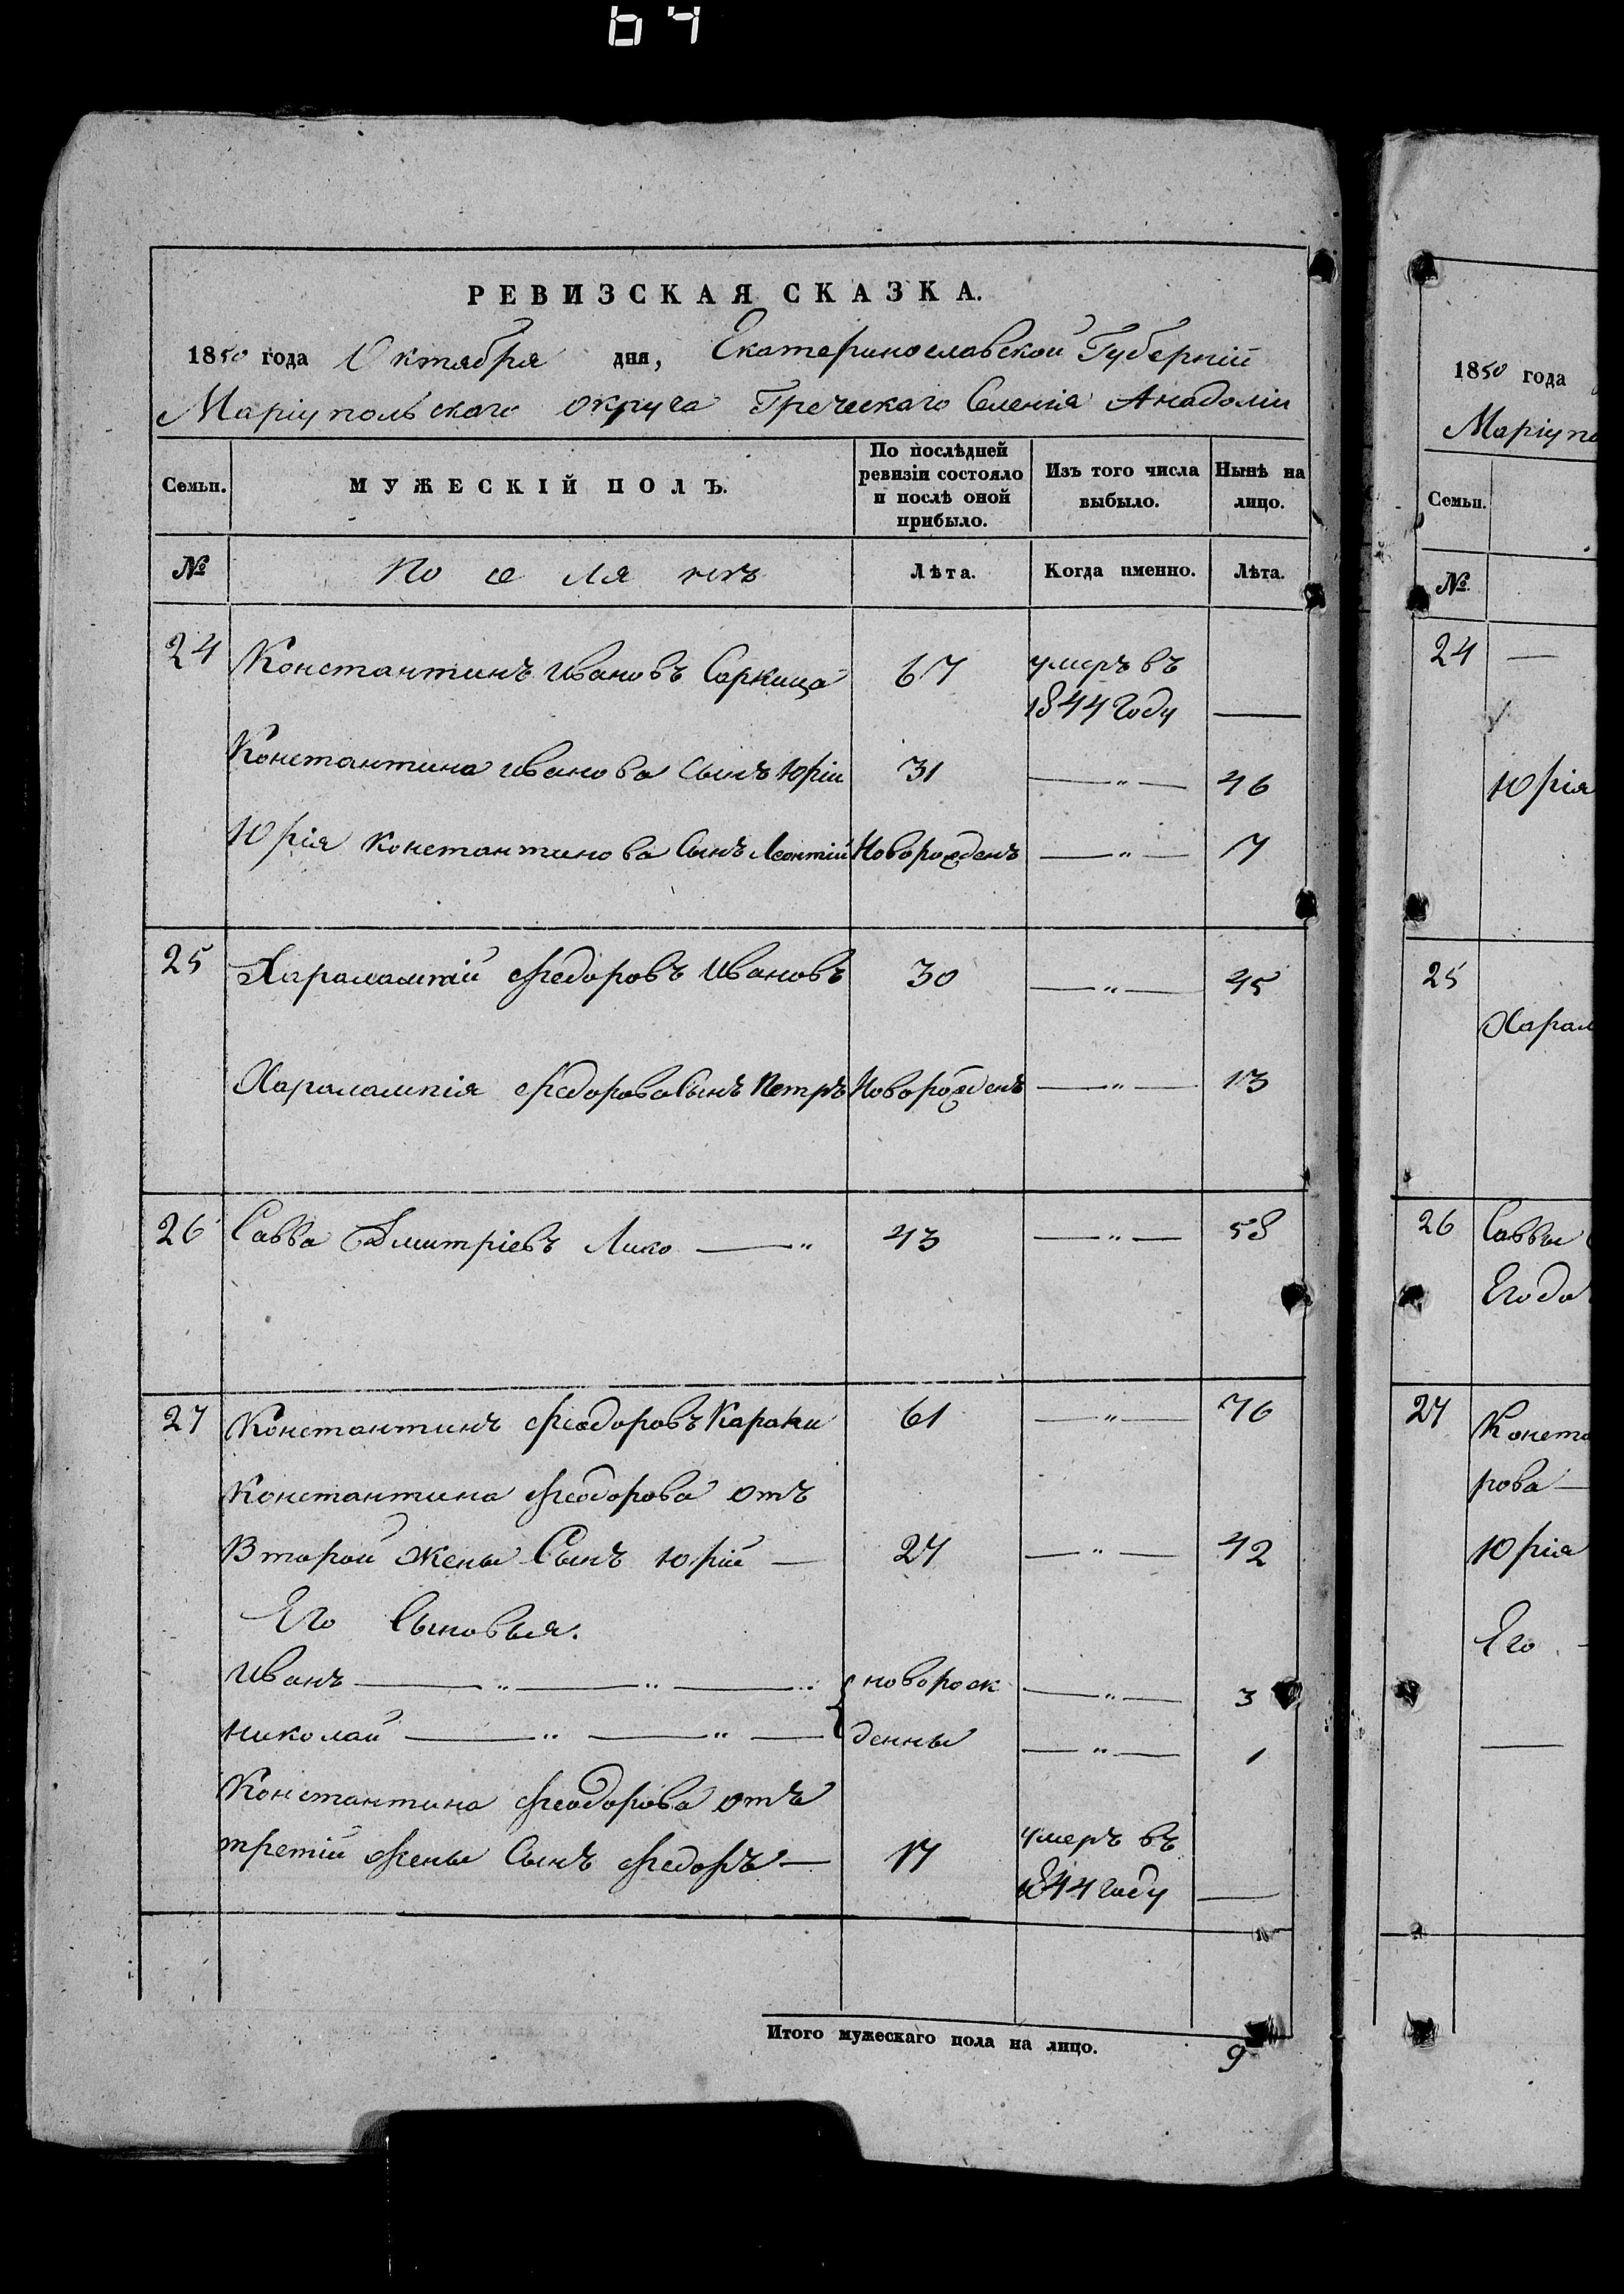 64
РЕВИЗСКАЯ СКАЗКА.
1850 года Октября дня, Екатеринославской Губерніи
Маріупольскаго округа Греческаго Селенія Анадоліи
Семьи. МУЖЕСКІЙ ПОЛЪ. По послѣдней ревизіи состояло и послѣ оной прибыло. Изъ того числа выбыло. Нынѣ на лицо.
№ Поселянъ Лѣта. Когда именно. Лѣта.
24 Константинъ Ивановъ 67 умеръ въ
1844 году —
Константина Иванова Сынъ Юрій 31 —„— 46
Юрія Константинова Сынъ Леонтій Новорожденъ —„— 7
25 Харалампій Федоровъ Ивановъ 30 —„— 45
Харалампія Федорова Сынъ Петръ Новорожденъ —„— 13
26 Савва Дмитріевъ Лико —„ 43 —„— 58
27 Константинъ Феодоровъ 61 —„— 76
Константина Феодорова отъ
Второй жены Сынъ Юрій — 27 —„— 42
Его Сыновья.
Иванъ —„—„—„ { новорож —„— 3
Николай —„—„— денны —„— 1
Константина Феодорова отъ
третій жены Сынъ Федоръ — 17 умеръ въ
1844 году —
Итого мужескаго пола на лицо. 9
1850 года
Маріупо
Семьи.
№
24 —
Юрія
25
Харал
26 Саввы
Его до
27 Конста
рова —
Юрія
Его —
—